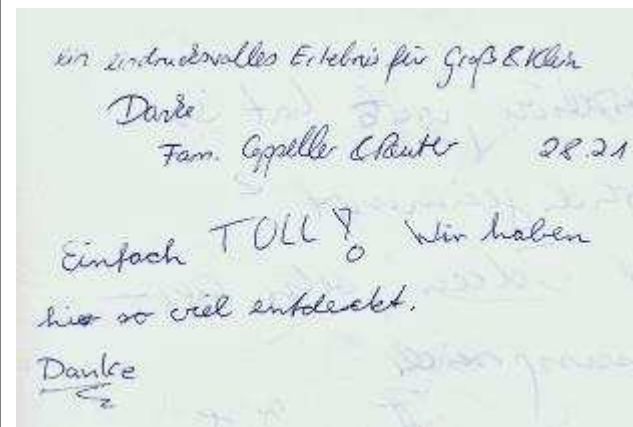 ein eindrucksvolles Erlebnis für Groß & Klein
Danke
Fam. & 28.21
Einfach TOLL! Wir haben
hier so viel entdeckt.
Danke